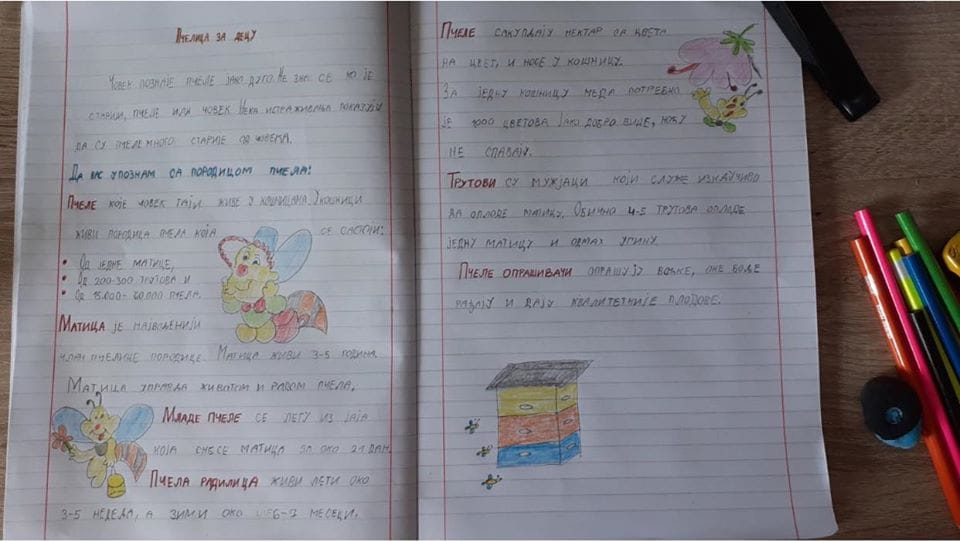 Пчелица за децу
Човек познаје пчеле јако дуго. Не зна се ко је
старији, пчеле или човек. Нека истраживања показују
да су пчеле много старије од човека.
Да вас упознам са породицом пчела!
Пчеле које човек гаји живе у кошницама. У кошници
живи породица пчела која се састоји:
• Од једне матице,
• Од 200-300 трутова и
• Од 15.000- 60.000 пчела.
Матица је највреднији
члан пчелиње породице. Матица живи 3-5 година.
Матица управља животом и радом пчела.
Младе пчеле се легу из јаја
која снесе матица за око 21 дан.
Пчела радилица живи лети око
3-5 недеља, а зими око 6-7 месеци.
Пчеле сакупљају нектар са цвета
на цвет, и носе у кошницу.
За једну кошницу меда потребно
је 1000 цветова. Јако добро виде, ноћу
не спавају.
Трутови су мужјаци који служе искључиво
да оплоде матицу. Обично 4-5 трутова оплоде
једну матицу и одмах угину.
Пчеле опрашивачи опрашују воћке, оне боље
рађају и дају квалитетније плодове.